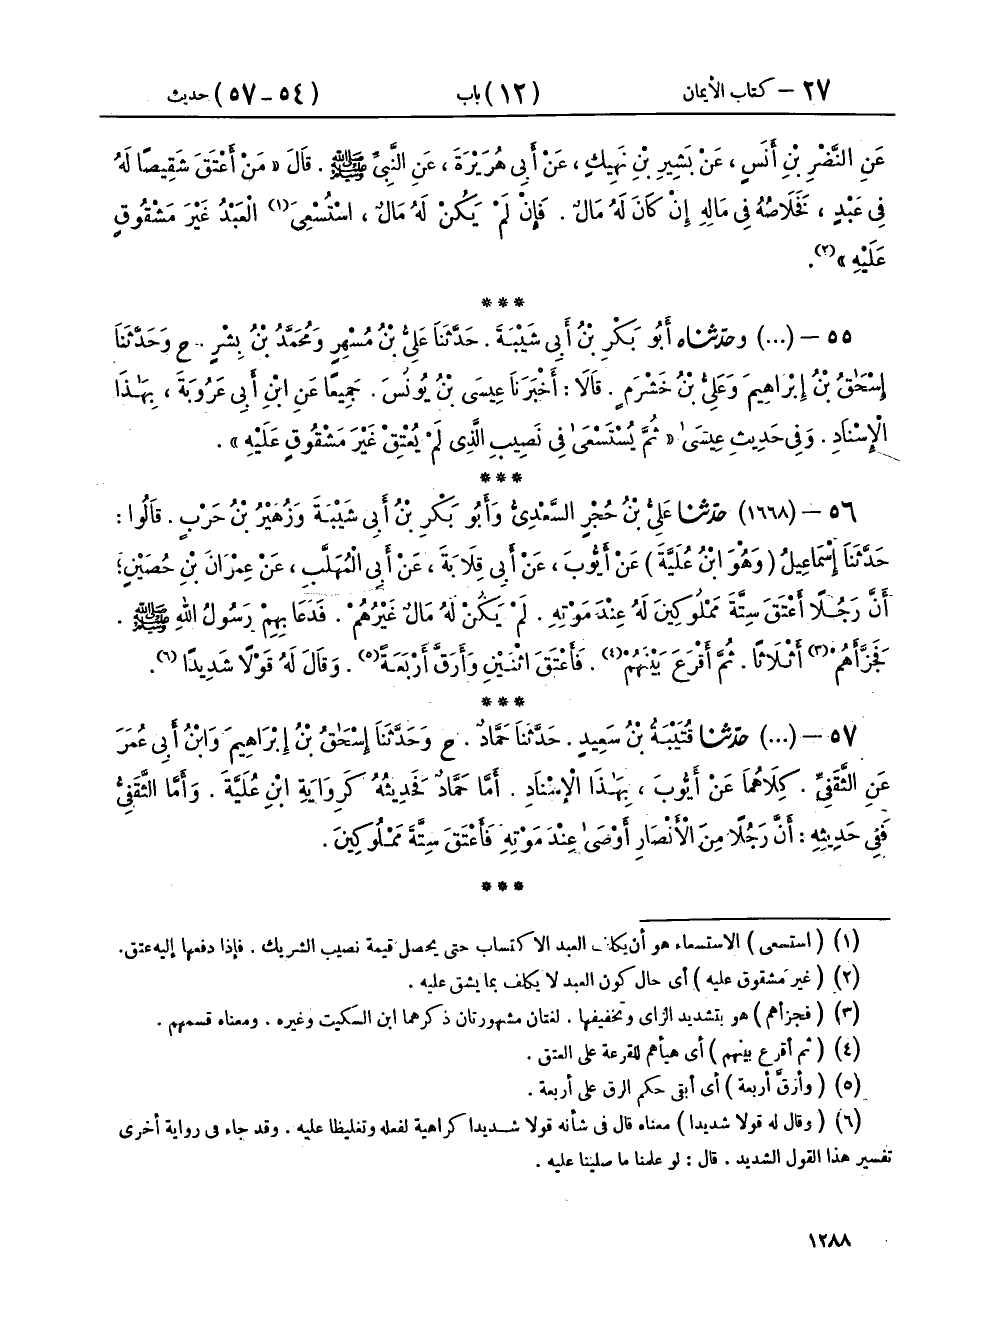 ٢٧ – كتاب الأيمان (١٢) باب (٥٤ – ٥٧) حديث
عَنِ النَّضْرِ بْنِ أَنَسٍ ، عَنْ بَشِيرِ بْنِ نَهِيكٍ ، عَنْ أَبِى هُرَيْرَةَ ، عَنِ النَّبِيِّ ﷺ . قَالَ « مَنْ أَعْتَقَ شَقِيصًا لَهُ
فِى عَبْدٍ ، فَخَلَاصُهُ فِى مَالِهِ إِنْ كَانَ لَهُ مَالٌ . فَإِنْ لَمْ يَكُنْ لَهُ مَالٌ ، اسْتُسْعِىَ(١) الْعَبْدُ غَيْرَ مَشْقُوقٍ
عَلَيْهِ »(٢).
***
٥٥ – (...) وحدّثناه أَبُو بَكْرِ بْنُ أَبِى شَيْبَةَ . حَدَّثَنَا عَلِيُّ بْنُ مُسْهِرٍ وَمُحَمَّدُ بْنُ بِشْرٍ . ح وَحَدَّثَنَا
إِسْحَاقُ بْنُ إِبْرَاهِيمَ وَعَلِيُّ بْنُ خَشْرَمٍ . قَالَا : أَخْبَرَنَا عِيسَى بْنُ يُونُسَ . جَمِيعًا عَنِ ابْنِ أَبِى عَرُوبَةَ ، بِهَٰذَا
الْإِسْنَادِ . وَفِى حَدِيثِ عِيسَىٰ « ثُمَّ يُسْتَسْعَىٰ فِى نَصِيبِ الَّذِى لَمْ يُعْتِقْ غَيْرَ مَشْقُوقٍ عَلَيْهِ » .
***
٥٦ – (١٦٦٨) حدّثنا عَلِيُّ بْنُ حُجْرٍ السَّعْدِىُّ وَأَبُو بَكْرِ بْنُ أَبِى شَيْبَةَ وَزُهَيْرُ بْنُ حَرْبٍ . قَالُوا :
حَدَّثَنَا إِسْمَاعِيلُ ( وَهُوَ ابْنُ عُلَيَّةَ ) عَنْ أَيُّوبَ ، عَنْ أَبِى قِلَابَةَ ، عَنْ أَبِى الْمُهَلَّبِ ، عَنْ عِمْرَانَ بْنِ حُصَيْنٍ؛
أَنَّ رَجُلًا أَعْتَقَ سِتَّةَ مَمْلُوكِينَ لَهُ عِنْدَ مَوْتِهِ . لَمْ يَكُنْ لَهُ مَالٌ غَيْرُهُمْ . فَدَعَا بِهِمْ رَسُولُ اللهِ ﷺ .
فَجَزَّأَهُمْ(٣) أَثْلَاثًا . ثُمَّ أَقْرَعَ بَيْنَهُمْ(٤) . فَأَعْتَقَ اثْنَيْنِ وَأَرَقَّ أَرْبَعَةً(٥) . وَقَالَ لَهُ قَوْلًا شَدِيدًا (٦).
***
٥٧ – (...) حدّثنا قُتَيْبَةُ بْنُ سَعِيدٍ . حَدَّثَنَا حَمَّادٌ . ح وَحَدَّثَنَا إِسْحَاقُ بْنُ إِبْرَاهِيمَ وَابْنُ أَبِى عُمَرَ
عَنِ الثَّقَفِىِّ . كِلَاهُمَا عَنْ أَيُّوبَ ، بِهَٰذَا الْإِسْنَادِ . أَمَّا حَمَّادٌ فَحَدِيثُهُ كَرِوَايَةِ ابْنِ عُلَيَّةَ . وَأَمَّا الثَّقَفِىُّ
فَفِى حَدِيثِهِ : أَنَّ رَجُلًا مِنَ الْأَنْصَارِ أَوْصَىٰ عِنْدَ مَوْتِهِ فَأَعْتَقَ سِتَّةَ مَمْلُوكِينَ .
***
(١) ( استسعى ) الاستسعاء هو أن يكلف العبد الاكتساب حتى يحصل قيمة نصيب الشريك . فإذا دفعها إليه عتق.
(٢) ( غير مشقوق عليه ) أى حال كون العبد لا يكلف بما يشق عليه .
(٣) ( فجزأهم ) هو بتشديد الزاى وتخفيفها . لغتان مشهورتان ذكرهما ابن السكيت وغيره . ومعناه قسمهم .
(٤) ( ثم أقرع بينهم ) أى هيأهم للقرعة على العتق .
(٥) ( وأرقَّ أربعة ) أى أبقى حكم الرق على أربعة .
(٦) ( وقال له قولا شديدا ) معناه قال فى شأنه قولا شديدا كراهية لفعله وتغليظا عليه . وقد جاء فى رواية أخرى
تفسير هذا القول الشديد . قال : لو علمنا ما صلينا عليه .
١٢٨٨